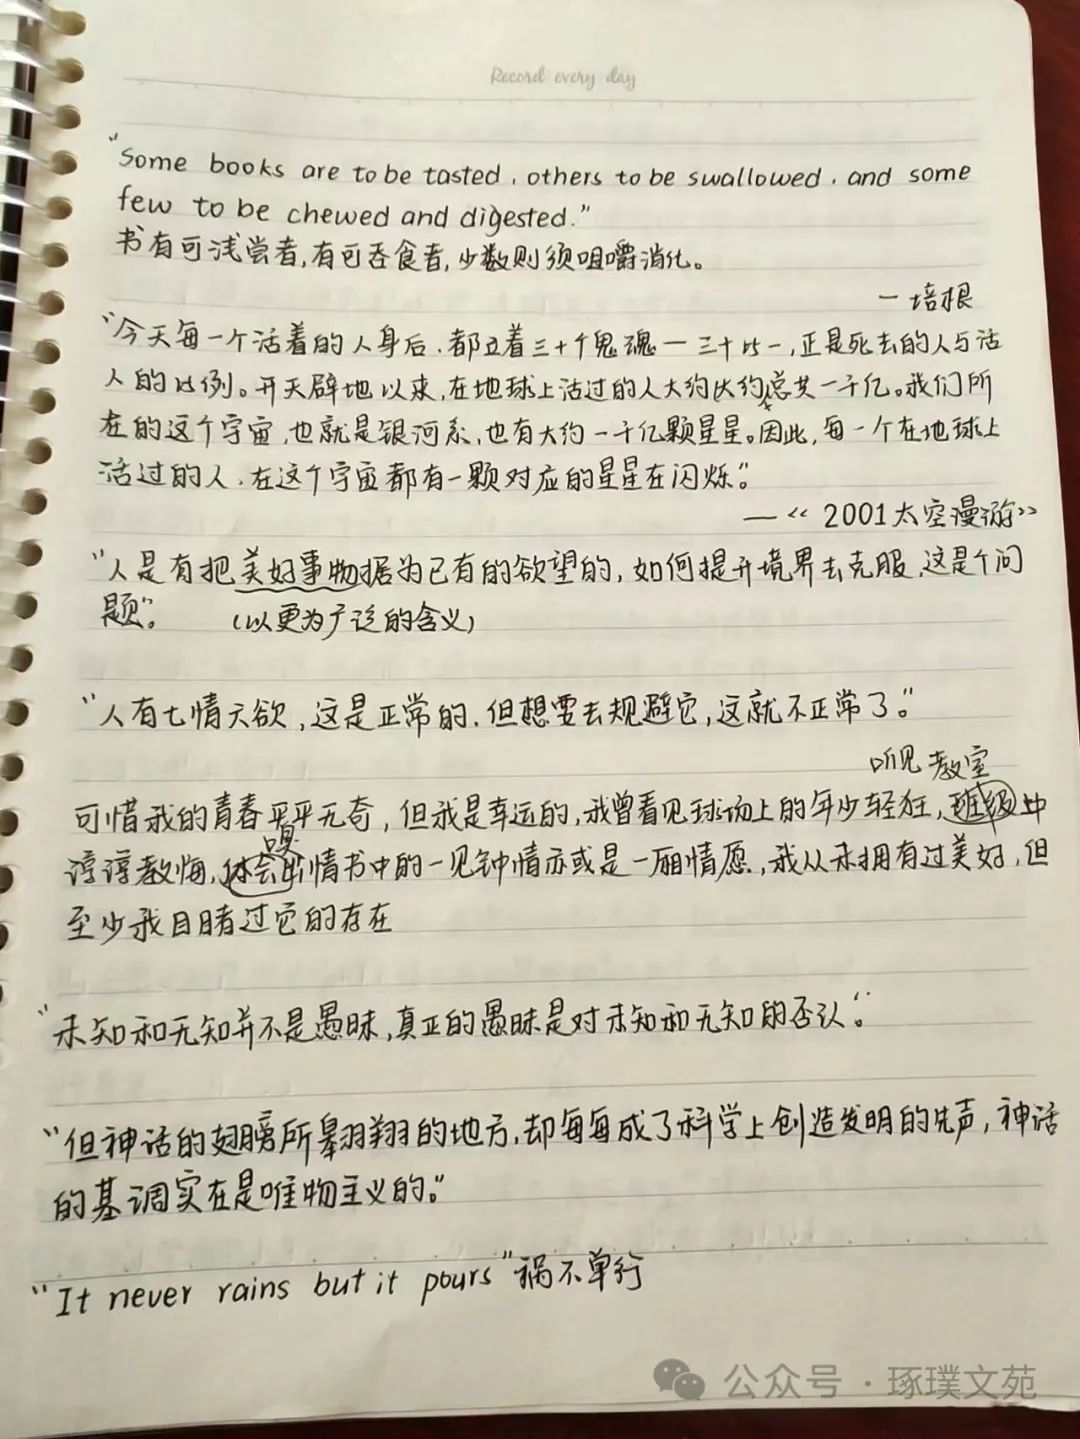 Record every day
"Some books are to be tasted, others to be swallowed, and some
few to be chewed and digested."
书有可浅尝者,有可吞食者,少数则须咀嚼消化。
一培根
"今天每一个活着的人身后,都立着三十个鬼魂一三十比一,正是死去的人与活
人的比例。开天辟地以来,在地球上活过的人大约总共一千亿。我们所
在的这个宇宙,也就是银河系,也有大约一千亿颗星星。因此,每一个在地球上
活过的人,在这个宇宙都有一颗对应的星星在闪烁。"
—《2001太空漫游》
"人是有把美好事物据为己有的欲望的,如何提升境界去克服,这是个问
题"。 (以更为广泛的含义)
"人有七情六欲,这是正常的,但想要去规避它,这就不正常了。"
听见 教室
可惜我的青春平平无奇,但我是幸运的,我曾看见球场上的年少轻狂,班级中
谆谆教悔,体会出情书中的一见钟情亦或是一厢情愿,我从未拥有过美好,但
至少我目睹过它的存在
"未知和无知并不是愚昧,真正的愚昧是对未知和无知的否认。"
"但神话的翅膀所翱翔的地方,却每每成了科学上创造发明的先声,神话
的基调实在是唯物主义的。"
"It never rains but it pours"祸不单行
公众号·琢璞文苑